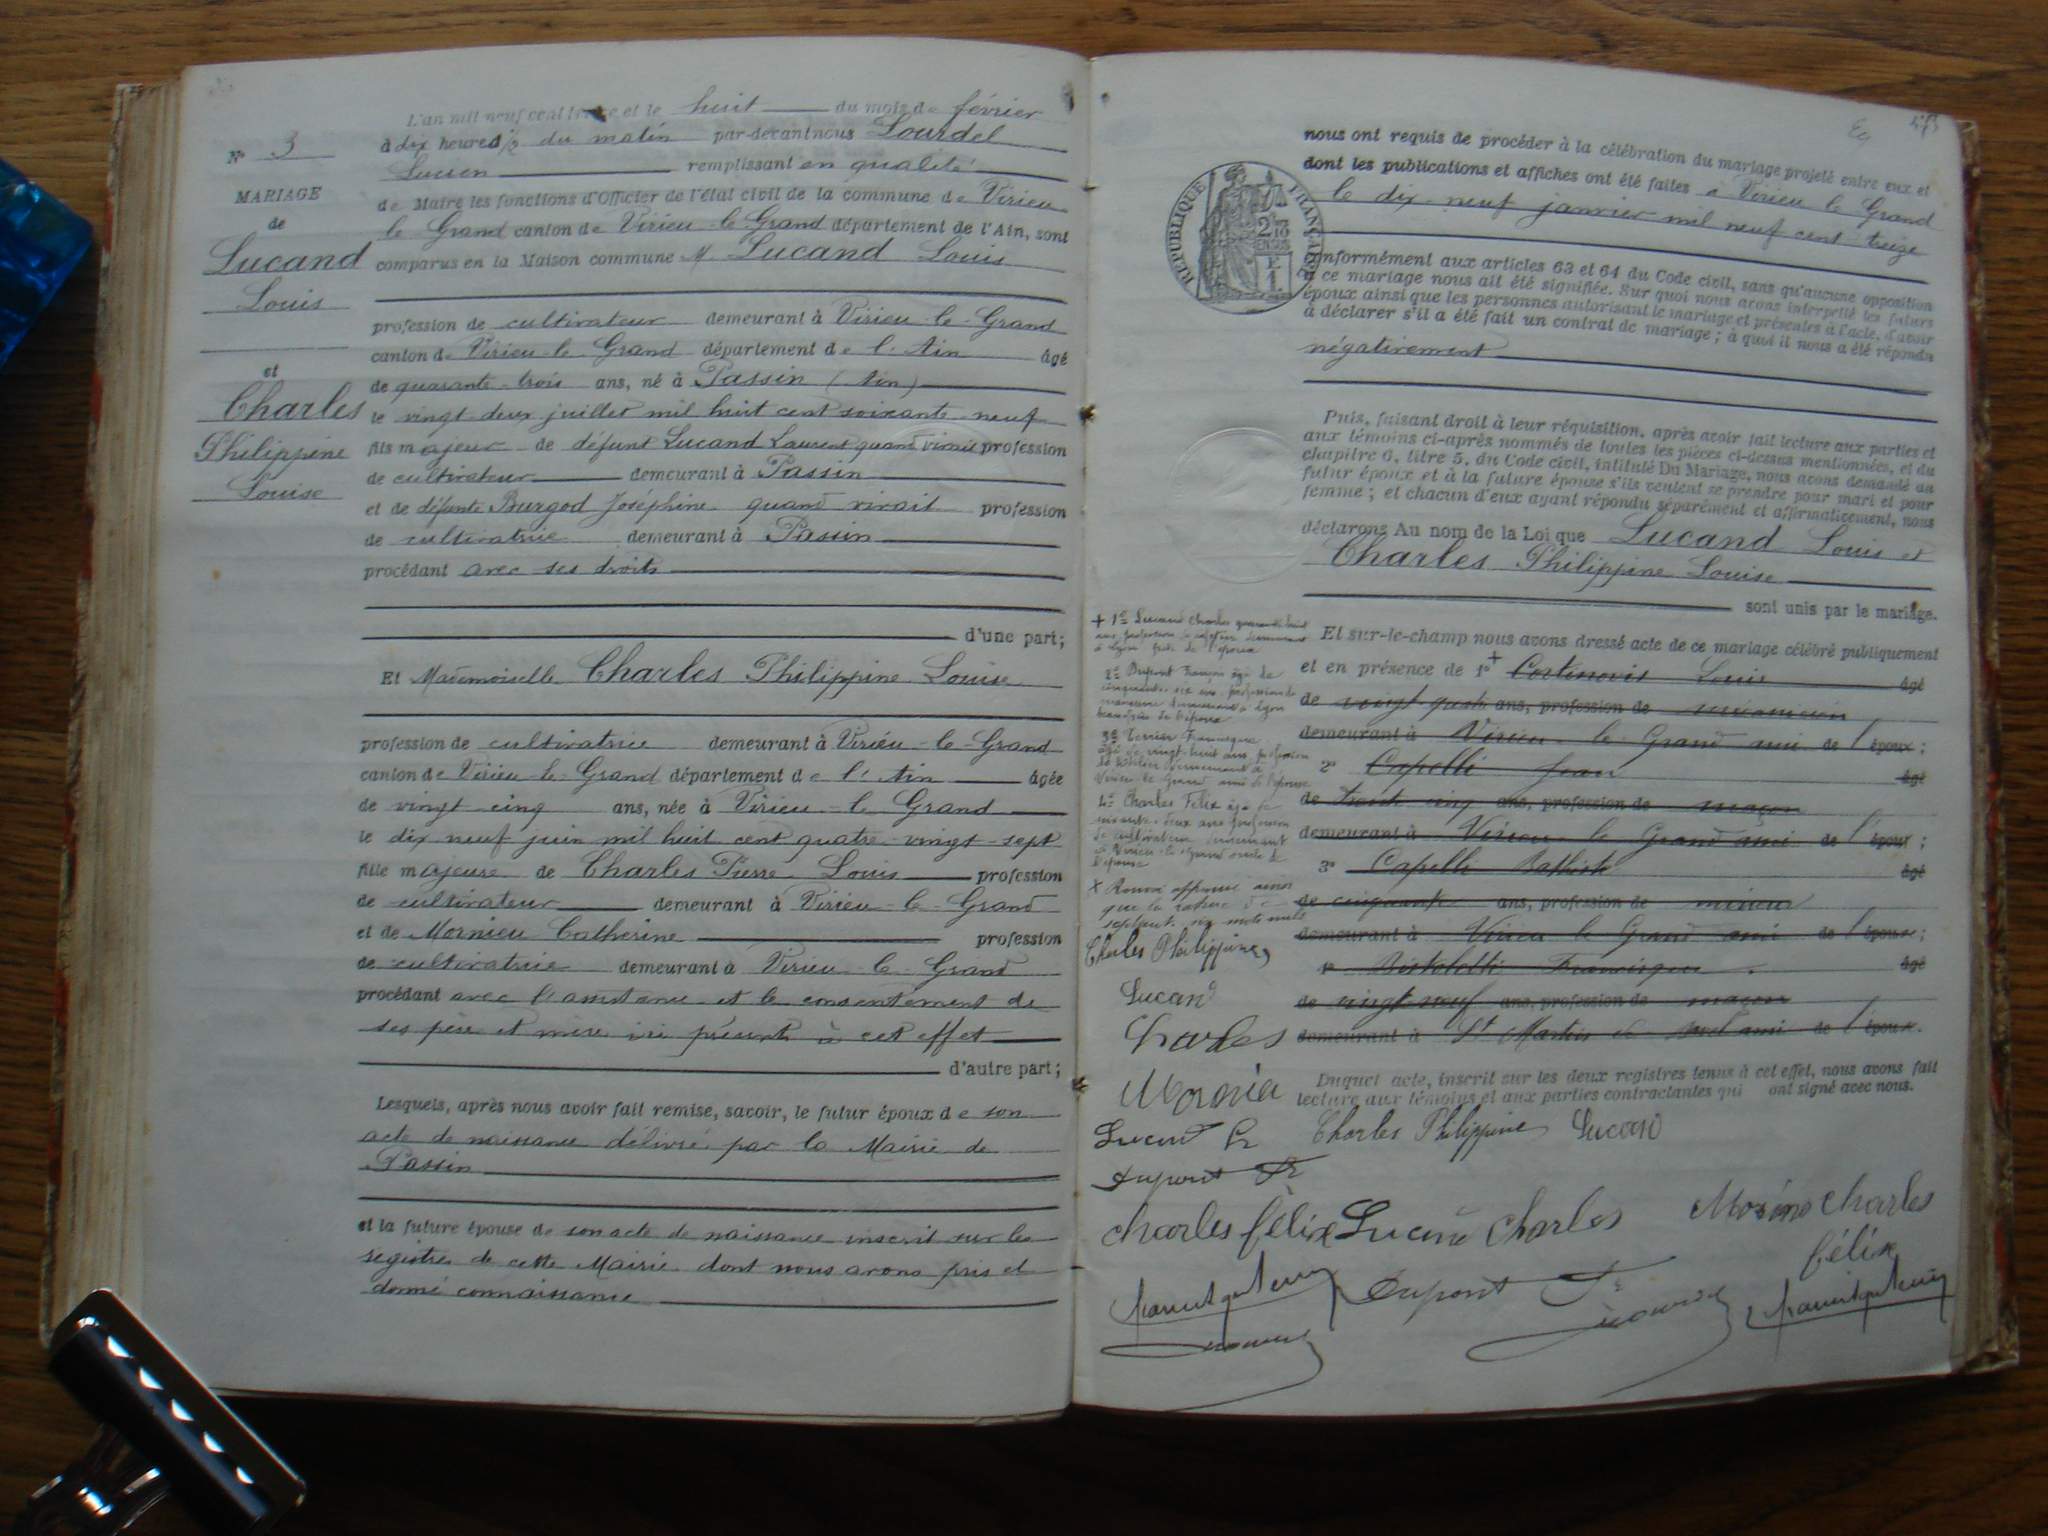 L'an mil neuf cent treize et le huit du mois de février
à dix heures ½ du matin par-devant nous Lourdel
Lucien remplissant en qualité
de Maire les fonctions d'Officier de l'état civil de la commune de Virieu
le Grand canton de Virieu-le-Grand département de l'Ain, sont
comparus en la Maison commune M Lucand Louis
N° 3
MARIAGE
de
Lucand
Louis
et
Charles
Philippine
Louise
profession de cultivateur demeurant à Virieu-le-Grand
canton de Virieu-le-Grand département de l'Ain âgé
de quarante-trois ans, né à Passin (Ain)
le vingt-deux juillet mil huit cent soixante-neuf
fils majeur de défunt Lucand Laurent quand vivait profession
de cultivateur demeurant à Passin
et de défunte Burgod Joséphine quand vivait profession
de cultivatrice demeurant à Passin
procédant avec ses droits
d'une part;
Et Mademoiselle Charles Philippine Louise
profession de cultivatrice demeurant à Virieu-le-Grand
canton de Virieu-le-Grand département de l'Ain âgée
de vingt cinq ans, née à Virieu-le-Grand
le dix neuf juin mil huit cent quatre-vingt-sept
fille majeure de Charles Pierre Louis profession
de cultivateur demeurant à Virieu-le-Grand
et de Mornieu Catherine profession
de cultivatrice demeurant à Virieu-le-Grand
procédant avec l'assistance et le consentement de
ses père et mère ici présents à cet effet
d'autre part;
Lesquels, après nous avoir fait remise, savoir, le futur époux de son
acte de naissance délivré par la Mairie de
Passin
et la future épouse de son acte de naissance inscrit sur les
registres de cette Mairie dont nous avons pris et
donné connaissance
nous ont requis de procéder à la célébration du mariage projeté entre eux et
dont les publications et affiches ont été faites à Virieu le Grand
le dix-neuf janvier mil neuf cent treize
RÉPUBLIQUE FRANÇAISE
conformément aux articles 63 et 64 du Code civil, sans qu'aucune opposition
à ce mariage nous ait été signifiée. Sur quoi nous avons interpellé les futurs
époux ainsi que les personnes autorisant le mariage et présentes à l'acte, d'avoir
à déclarer s'il a été fait un contrat de mariage; à quoi il nous a été répondu
négativement
Puis, faisant droit à leur réquisition, après avoir fait lecture aux parties et
aux témoins ci-après nommés de toutes les pièces ci-dessus mentionnées, et du
chapitre 6, titre 5, du Code civil, intitulé Du Mariage, nous avons demandé au
futur époux et à la future épouse s'ils veulent se prendre pour mari et pour
femme; et chacun d'eux ayant répondu séparément et affirmativement, nous
déclarons Au nom de la Loi que Lucand Louis et
Charles Philippine Louise
sont unis par le mariage.
Et sur-le-champ nous avons dressé acte de ce mariage célébré publiquement
et en présence de 1° + Cortinovis Louis âgé
de vingt quatre ans, profession de mécanicien
demeurant à Virieu le Grand ami de l'époux;
2° Capelli Jean âgé
de trente cinq ans, profession de maçon
demeurant à Virieu le Grand ami de l'époux;
3° Capelli Bathiste âgé
de cinquante ans, profession de mineur
demeurant à Virieu le Grand ami de l'époux;
Francisque âgé
de vingt neuf ans, profession de maçon
demeurant à St Martin de ami de l'époux.
+ 1° Lucand Charles quarante huit
ans, profession de demeurant
à Lyon frère de l'époux
2° Dupont François âgé de
cinquante-six ans, profession de
demeurant à Lyon
beau-frère de l'époux
3° Francisque
âgé de vingt-huit ans, profession
de demeurant à
Virieu-le-Grand ami de l'épouse
4° Charles Félix âgé de
soixante-deux ans profession
de cultivateur demeurant
à Virieu-le-Grand oncle de
l'épouse
X Renvoi approuvé ainsi
que la rature de
septante-six mots nuls
Charles Philippine
Lucand
Charles
Dupont
Charles félix
Duquel acte, inscrit sur les deux registres tenus à cet effet, nous avons fait
lecture aux témoins et aux parties contractantes qui ont signé avec nous.
Charles Philippine Lucand
Lucand Charles
Charles
félix
Dupont